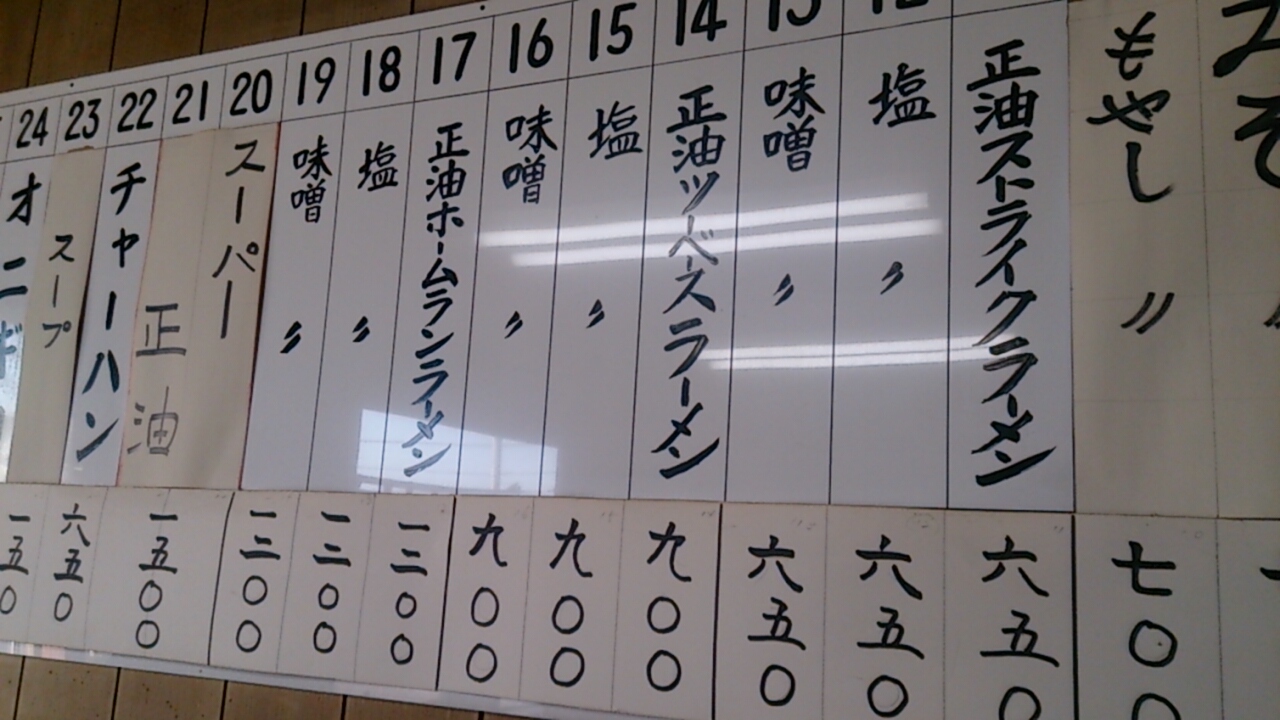 24 23 22 21 20 19 18 17 16 15 14 13 12
みそ
もやし 〃
正油ストライクラーメン
塩 〃
味噌 〃
正油ツーベースラーメン
塩 〃
味噌 〃
正油ホームランラーメン
塩 〃
味噌 〃
スーパー
正油
チャーハン
スープ
オニギ
七〇〇
六五〇
六五〇
六五〇
九〇〇
九〇〇
九〇〇
一二〇〇
一二〇〇
一二〇〇
一五〇〇
六五〇
一五〇